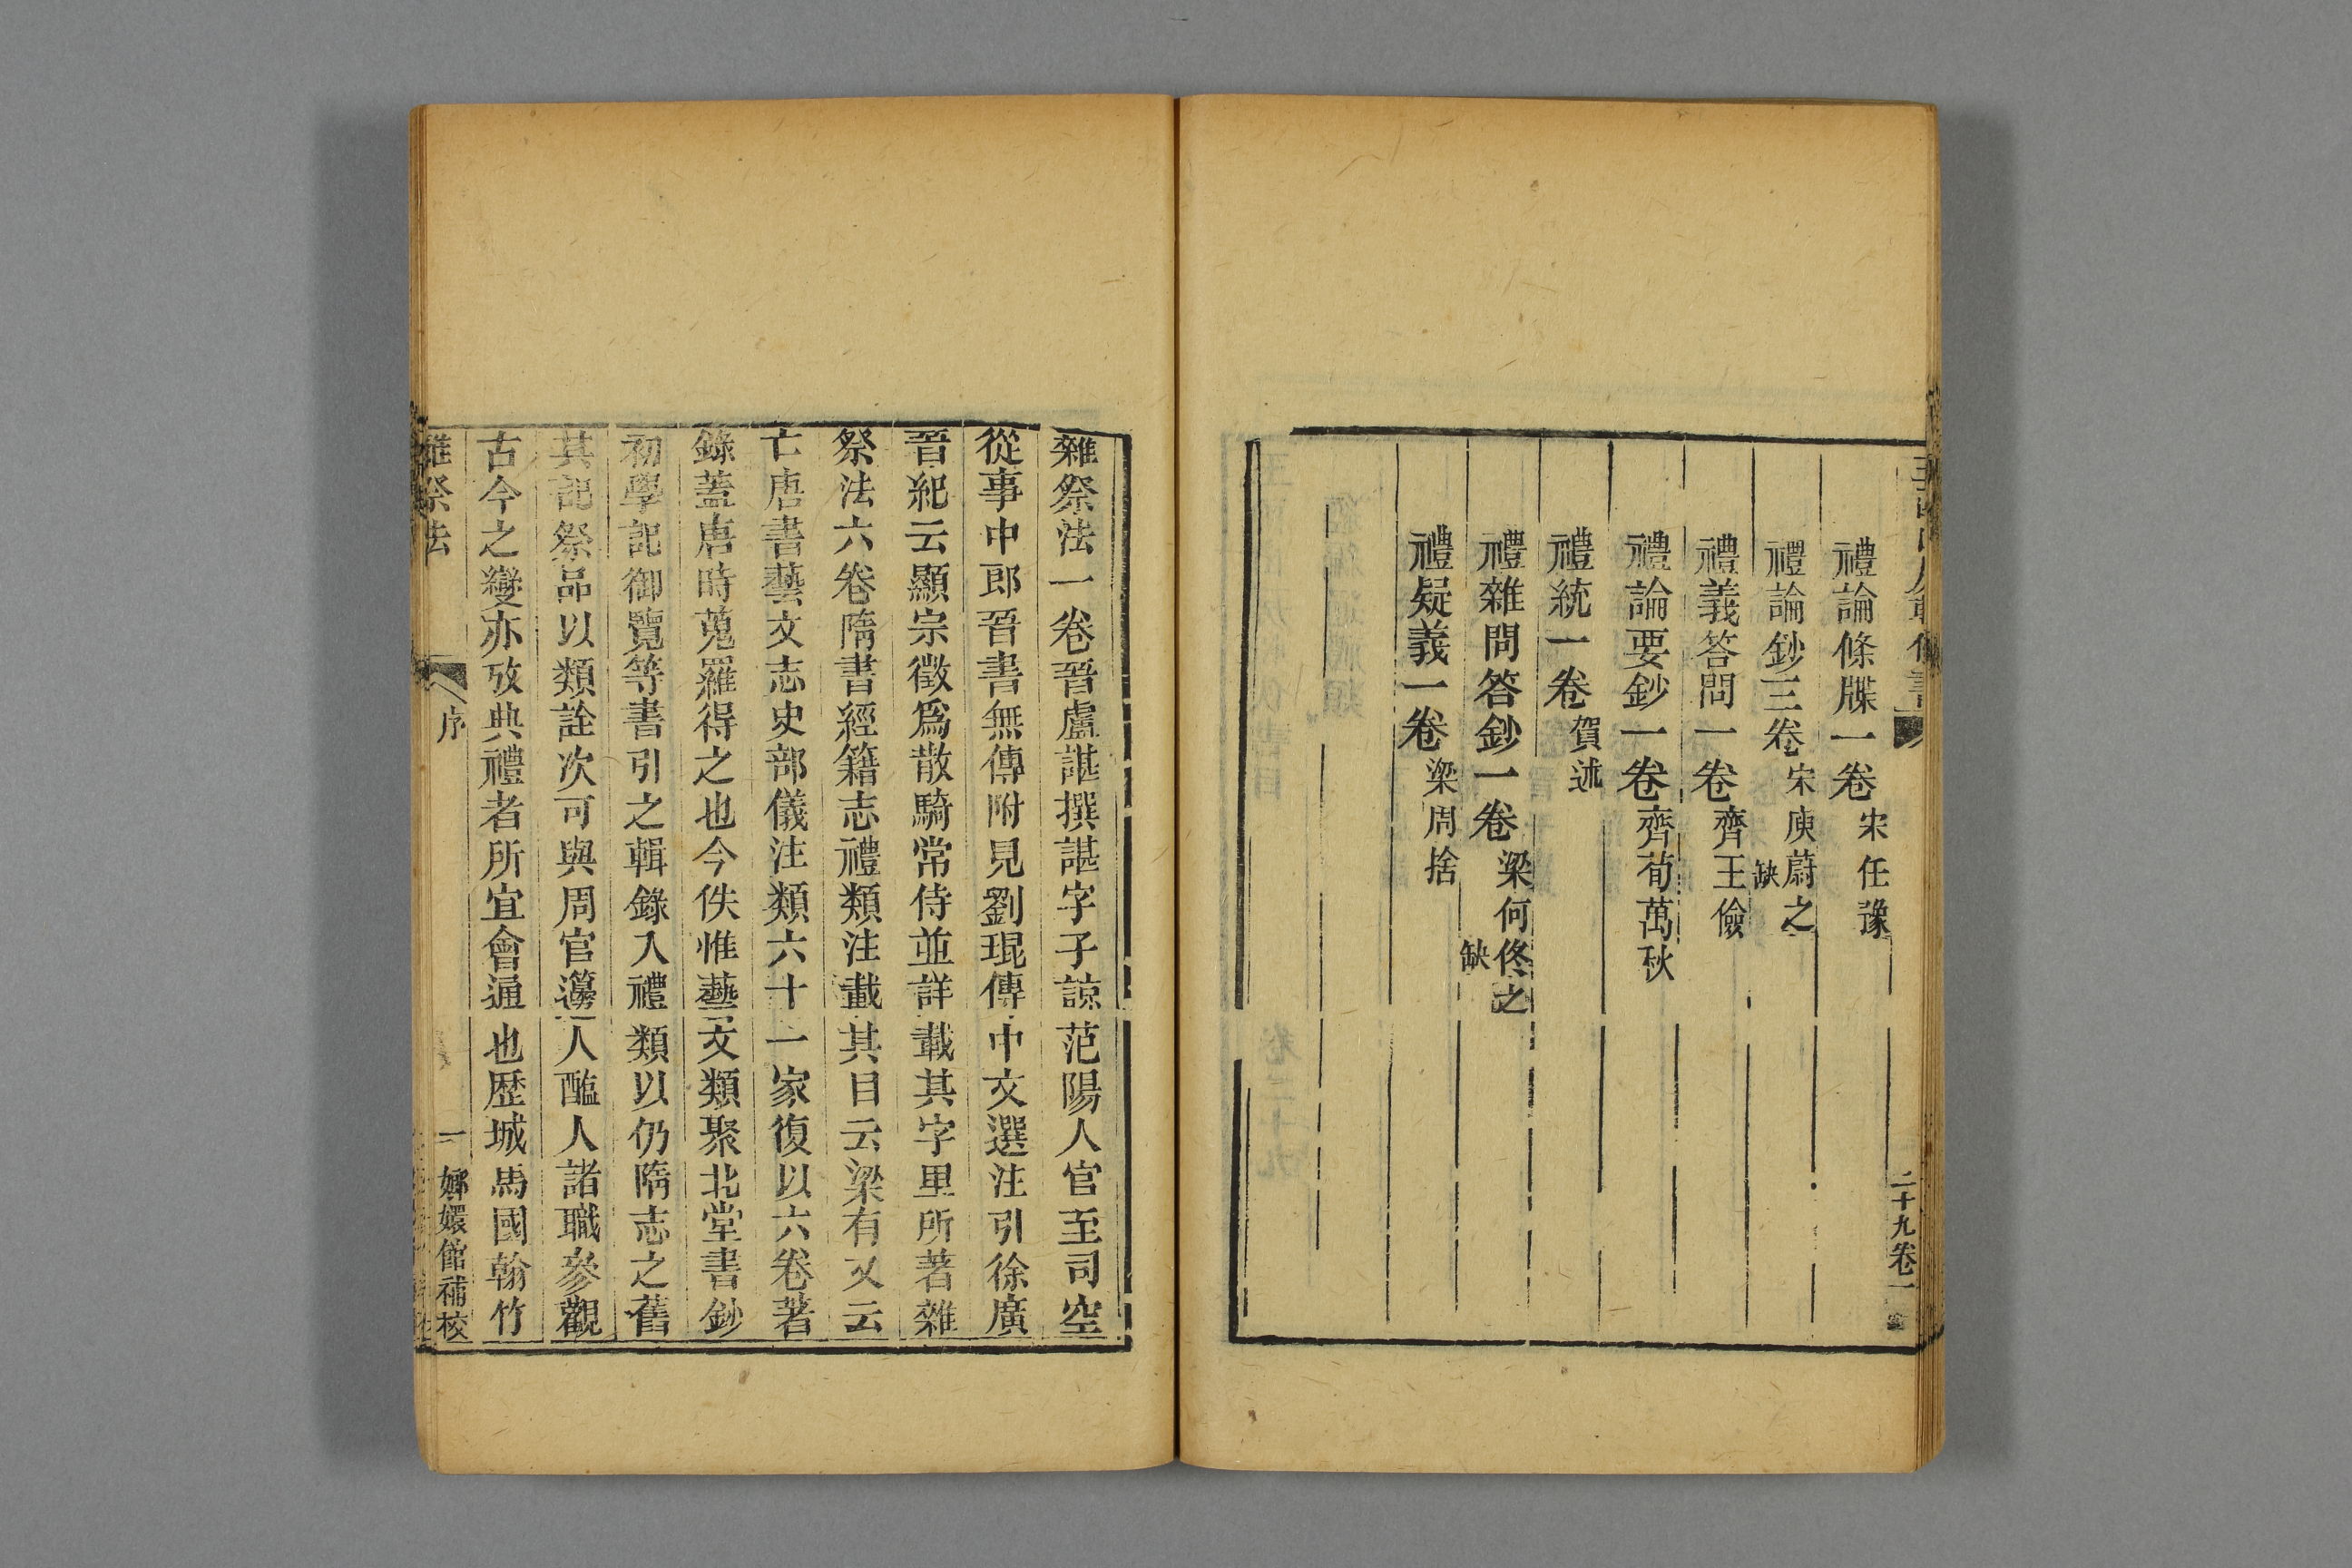 禮論條牒一卷宋任豫
禮論鈔三卷宋庾蔚之缺
禮義答問一卷齊王儉
禮論要鈔一卷齊荀萬秋
禮統一卷賀述
禮雜問答鈔一卷梁何佟之缺
禮疑義一卷梁周捨
二十九卷一
雜祭法一卷晉盧諶撰諶字子諒范陽人官至司空
從事中郎晉書無傳附見劉琨傳中文選注引徐廣
晉紀云顯宗徵爲散騎常侍並詳載其字里所著雜
祭法六卷隋書經籍志禮類注載其目云梁有又云
亡唐書藝文志史部儀注類六十一家復以六卷著
錄蓋唐時蒐羅得之也今佚惟藝文類聚北堂書鈔
初學記御覽等書引之輯錄入禮類以仍隋志之舊
其記祭品以類詮次可與周官籩人醢人諸職參觀
古今之變亦攷典禮者所宜會通也歴城馬國翰竹
雜祭法
序
一
嫏嬛館補校